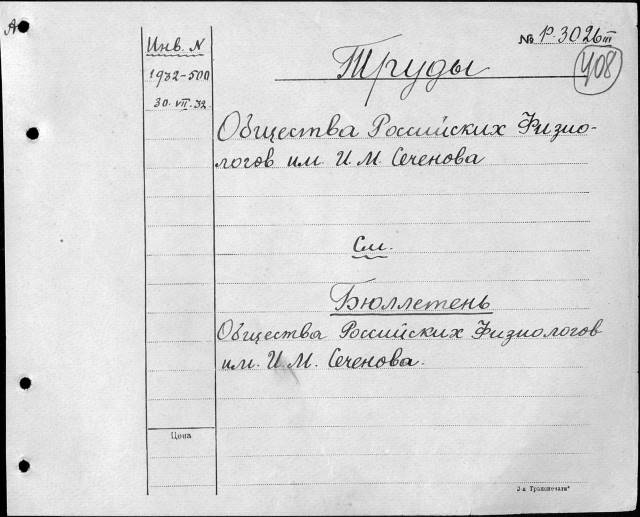 А
Инв. N
№ Р. 3026 III
408
1932-500
30. VII. 32
Труды
Общества Российских Физио-
логов им. И. М. Сеченова
См.
Бюллетень
Общества Российских Физиологов
им. И. М. Сеченова.
Цена